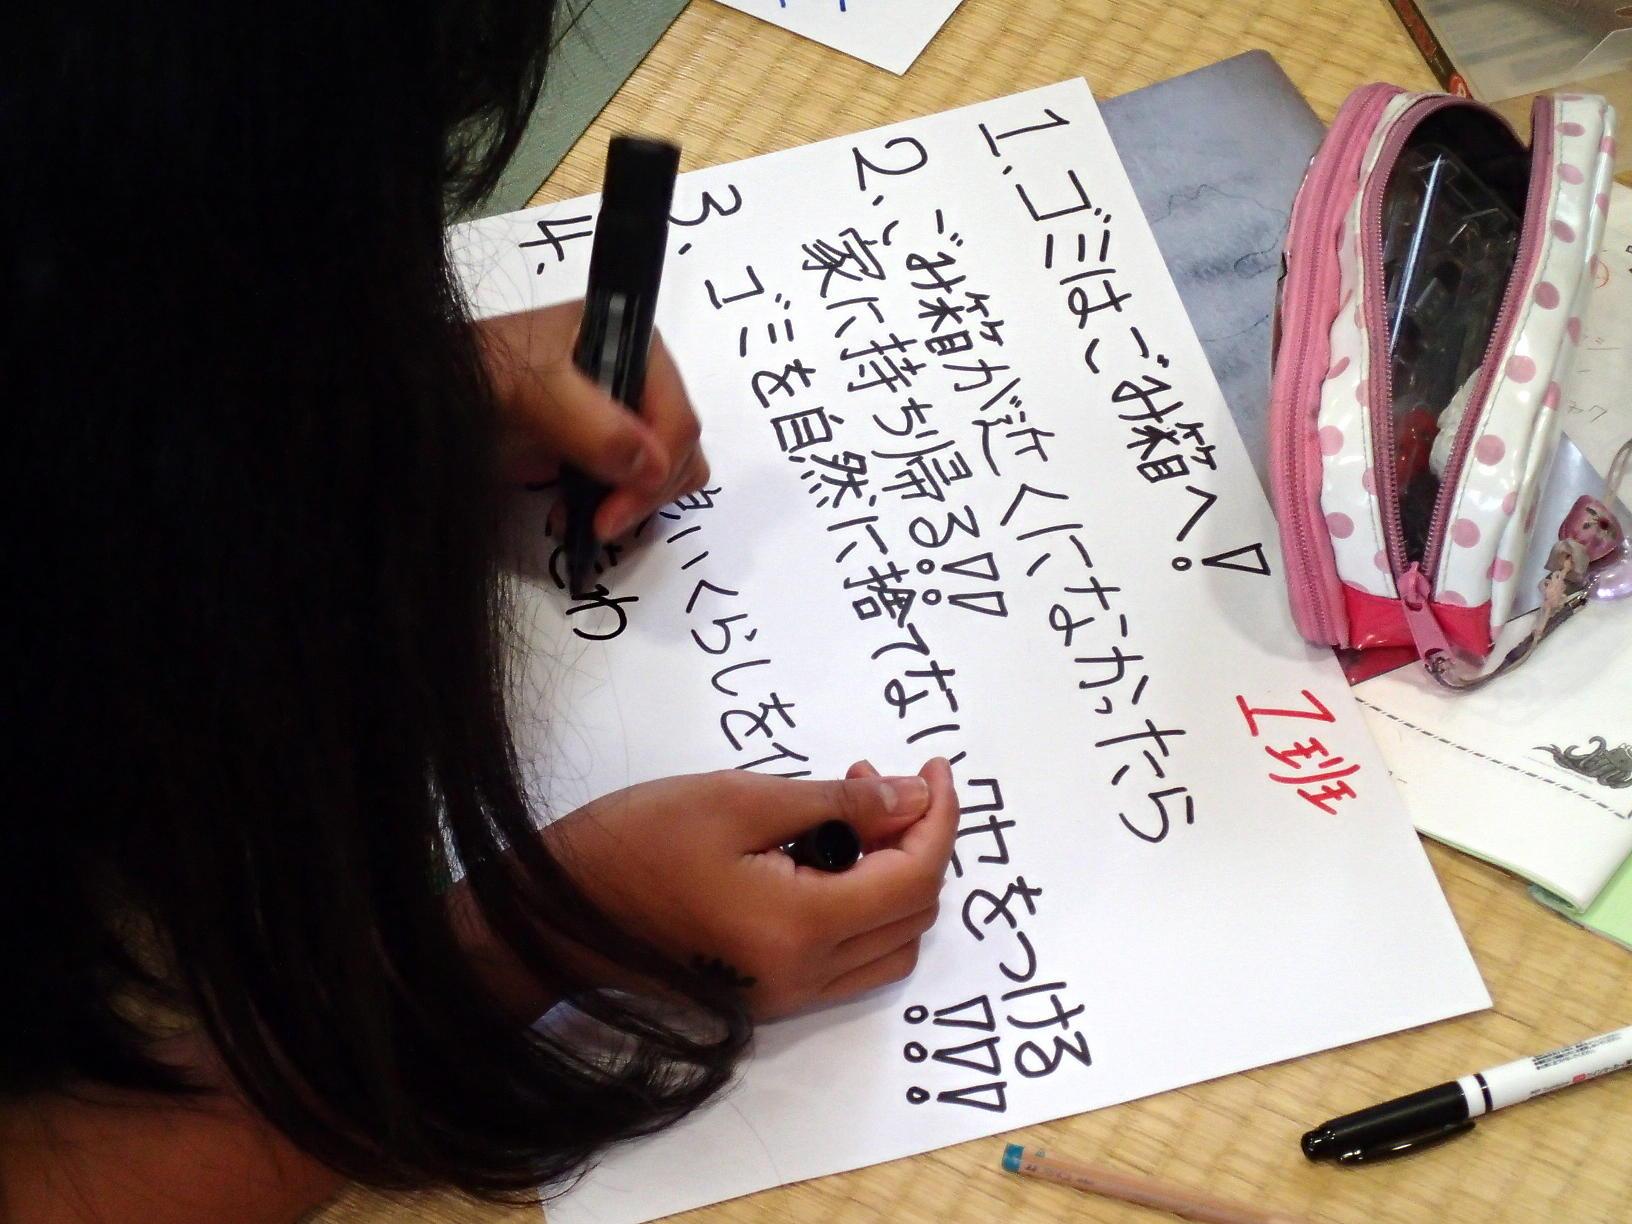 1班
1.ゴミはごみ箱へ!
2.ごみ箱が近くになかったら
家に持ち帰る!!
3.ゴミを自然に捨てない
をつける!!!
4.
いくらしを